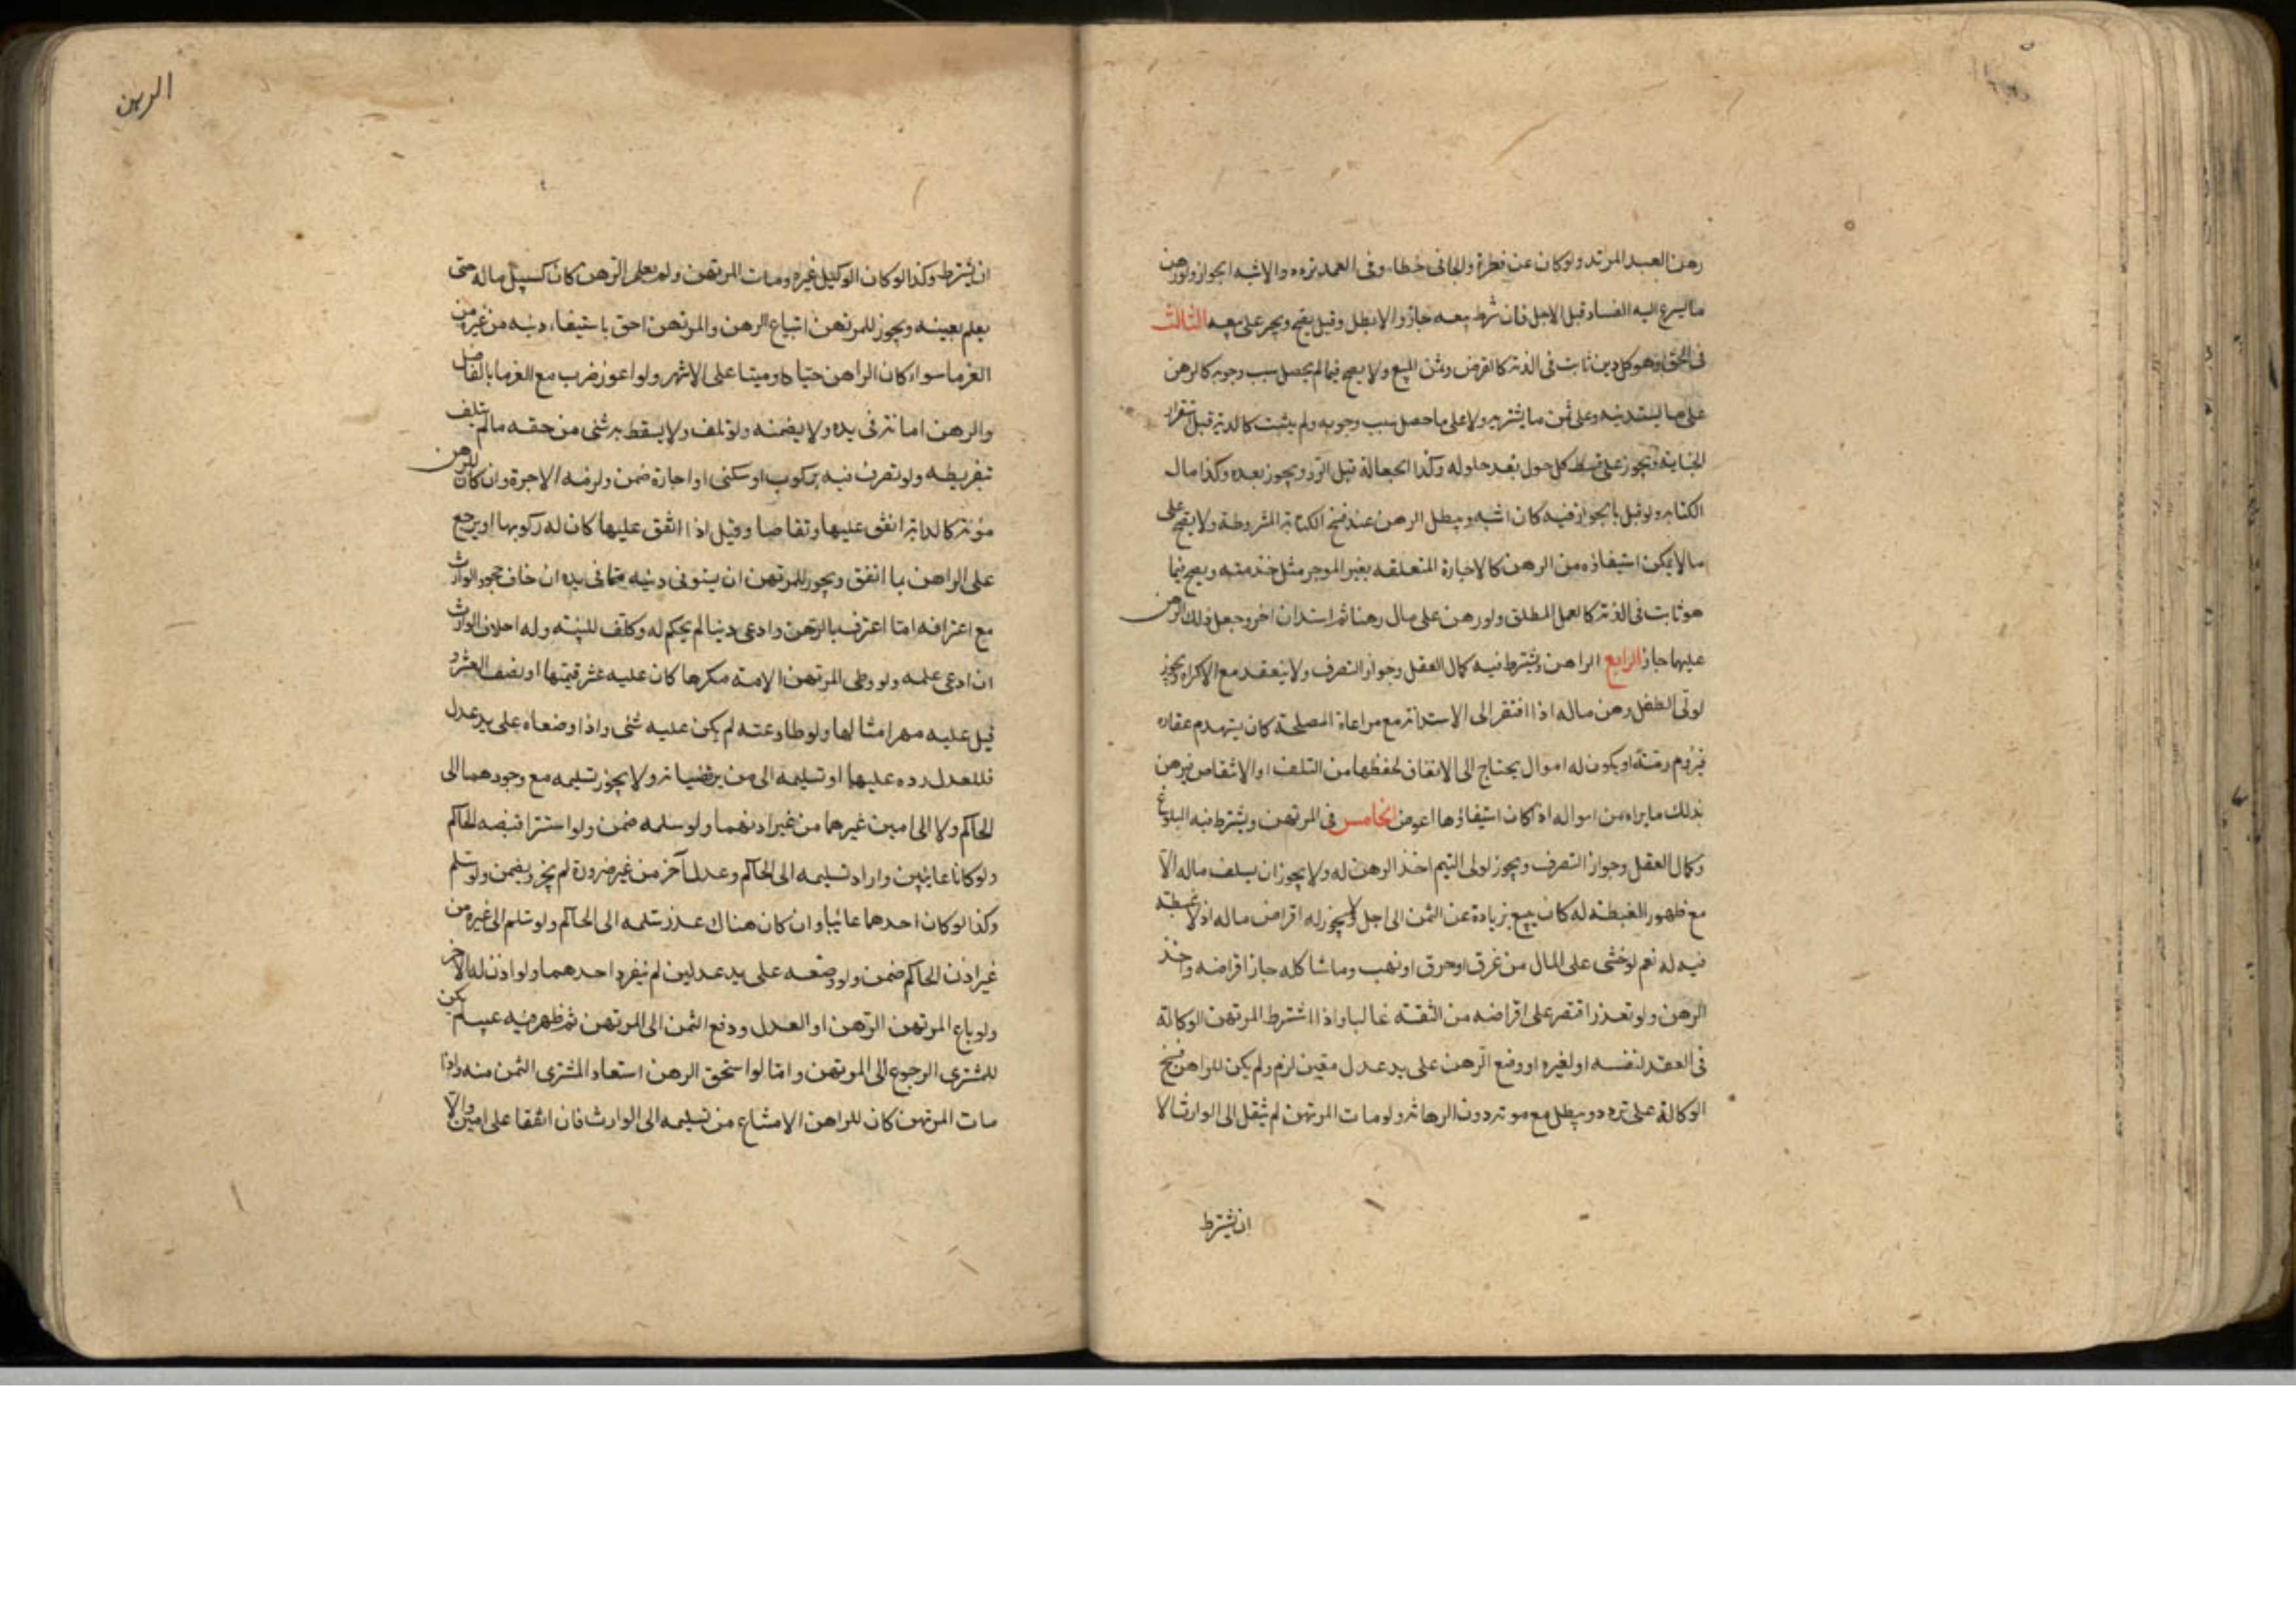 رهن العبد المرتد ولو كان عن فطرة والجانى خطاء وفى العمد تردد والاشبه الجواز ولو رهن
ما يسرع اليه الفساد قبل الاجل فان شرط بيعه جاز والا بطل وقيل يصح ويجبر على بيعه الثالث
فى الحق وهو كل دين ثابت فى الذمة كالقرض وثمن المبيع ولا يصح فيما لم يحصل سبب وجوبه كالرهن
على ما يستدينه وعلى ثمن ما يشتريه ولا على ما حصل سبب وجوبه ولم يثبت كالدية قبل استقرار
الجناية ويجوز على قسط كل حول بعد حلوله وكذا الجعالة قبل الرد ويجوز بعده وكذا مال
الكتابة ولو قيل بالجواز فيه كان اشبه ويبطل الرهن عند فسخ الكتابة المشروطة ولا يصح على
ما لا يمكن استيفاؤه من الرهن كالاجارة المتعلقه بعين الموجر مثل خدمته ويصح فيما
هو ثابت فى الذمة كالعمل المطلق ولو رهن على مال رهنا ثم استدان اخر وجعل ذلك الرهن
عليهما جاز الرابع الراهن ويشترط فيه كمال العقل وجواز التصرف ولا ينعقد مع الاكراه ويجوز
لولى الطفل رهن ماله اذا افتقر الى الاستدانة مع مراعاة المصلحة كان يتهدم عقاره
فيروم رمته او يكون له اموال يحتاج الى الانفاق لحفظها من التلف او الانتقاص فيرهن
بذلك ما يراه من امواله اذا كان استيفاؤها اعوض الخامس فى المرتهن ويشترط فيه البلوغ
وكمال العقل وجواز التصرف ويجوز لولى اليتيم اخذ الرهن له ولا يجوز ان يسلف ماله الا
مع ظهور الغبطة له كان يبيع بزيادة عن الثمن الى اجل ولا يجوز له اقراض ماله اذ لا غبطة
فيه له نعم لو خشى على المال من غرق او حرق او نهب وما شاكله جاز اقراضه واخذ
الرهن ولو تعذر اقتصر على اقراضه من الثقة غالبا واذا اشترط المرتهن الوكالة
فى العقد لنفسه او لغيره او وضع الرهن على يد عدل معين لزم ولم يكن للراهن فسخ
الوكالة على تردد ويبطل مع موته دون الرهانة ولو مات المرتهن لم ينتقل الى الوارث الا
ان يشترط
الرهن
ان يشترط وكذا لو كان الوكيل غيره ومات المرتهن ولم يعلم الرهن كان كسبيل ماله حتى
يعلم بعينه ويجوز للمرتهن ابتياع الرهن والمرتهن احق باستيفاء دينه من غيره من
الغرما سواء كان الراهن حيا او ميتا على الاشهر ولو اعوز ضرب مع الغرما بالفاضل
والرهن امانة فى يده ولا يضمنه ولو تلف ولا يسقط به شئى من حقه ما لم يتلف
بتفريطه ولو تصرف فيه بركوب او سكنى او اجارة ضمن ولزمه الاجرة وان كان للرهن
مؤنة كالدابة انفق عليها وتقاصا وقيل اذا انفق عليها كان له ركوبها او يرجع
على الراهن بما انفق ويجوز للمرتهن ان يستوفى دينه مما فى يده ان خاف جحود الوارث
مع اعترافه اما اعترف بالرهن وادعى دينا لم يحكم له وكلف للبينه وله احلاف الوارث
ان ادعى علمه ولو وطى المرتهن الامة مكرها كان عليه عشر قيمتها او نصف العشر و
قيل عليه مهر امثالها ولو طاوعته لم يكن عليه شئى واذا وضعاه على يد عدل
فللعدل رده عليهما او تسليمه الى من يرتضيانه ولا يجوز تسليمه مع وجودهما الى
الحاكم ولا الى امين غيرهما من غير اذنهما ولو سلمه ضمن ولو استترا قبضه الحاكم
ولو كانا غايبين واراد تسليمه الى الحاكم وعدل آخر من غير ضرورة لم يجز ويضمن ولو سلم
وكذا لو كان احدهما غائبا وان كان هناك عذر سلمه الى الحاكم ولو سلم الى غيره من
غير اذن الحاكم ضمن ولو وضعه على يد عدلين لم ينفرد احدهما ولو اذن له الآخر
ولو باع المرتهن الرهن او العدل ودفع الثمن الى المرتهن ثم ظهر فيه عيب لم يكن
للمشترى الرجوع الى المرتهن واما لو استحق الرهن استعاد المشترى الثمن منه واذا
مات المرتهن كان للراهن الامتناع من تسليمه الى الوارث فان اتفقا على امين والا